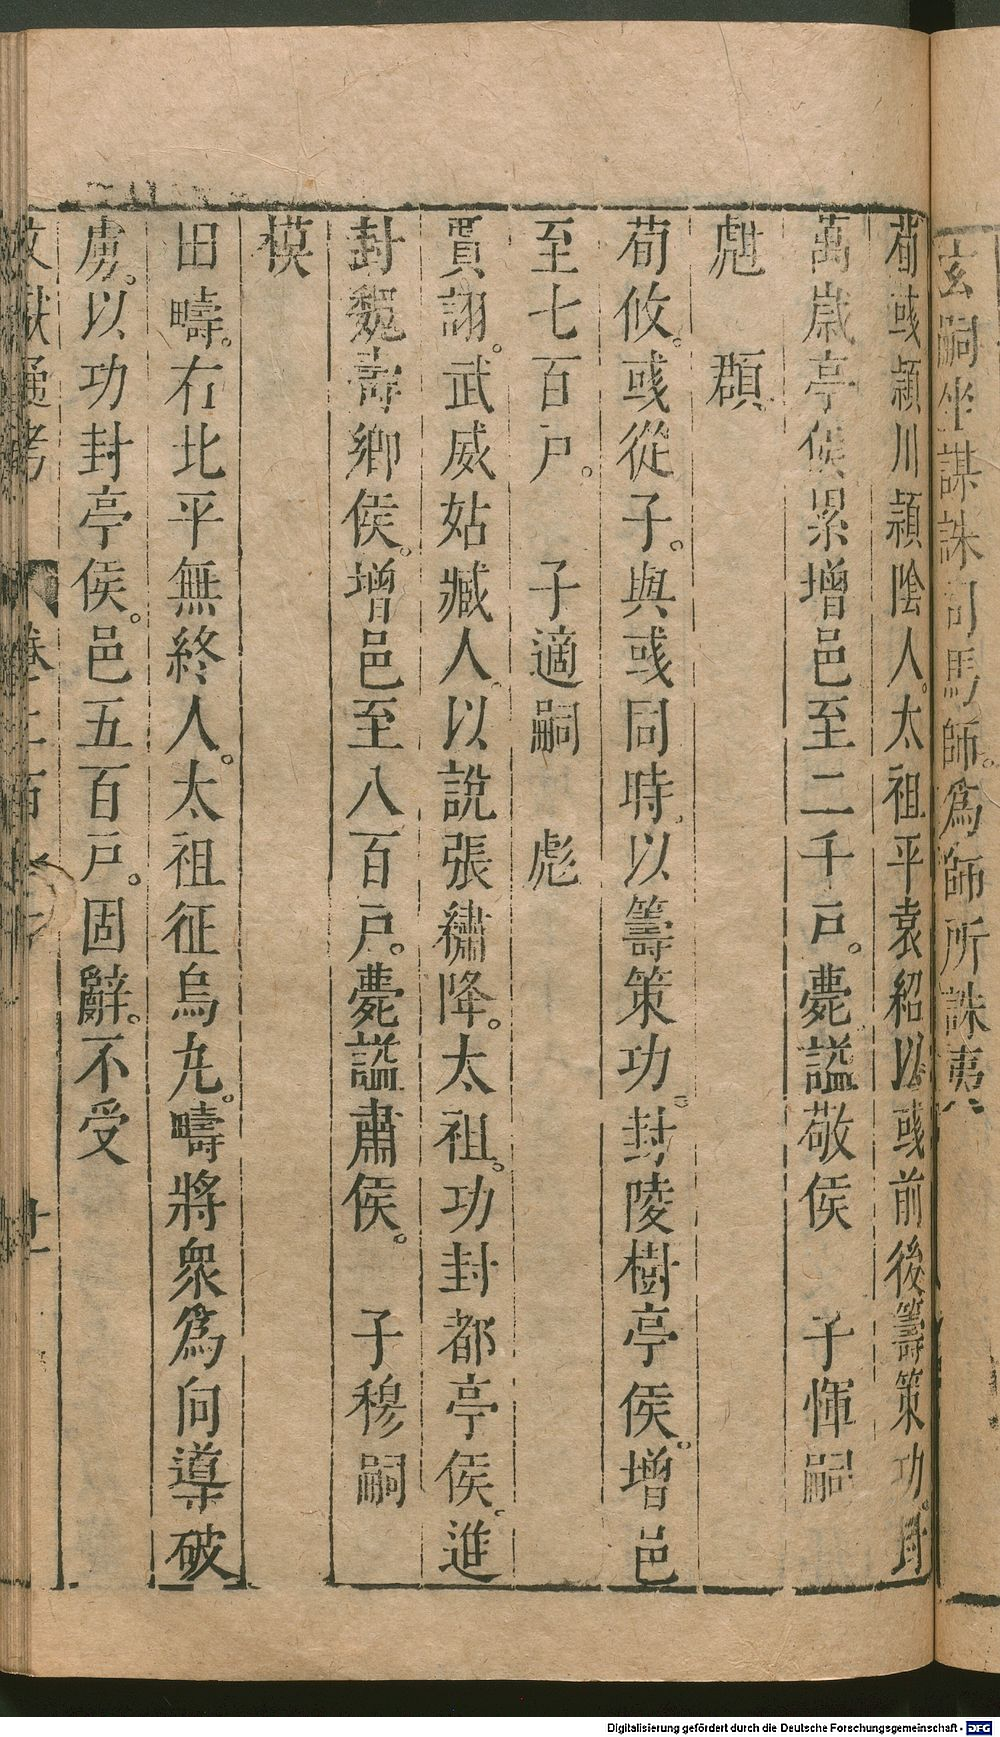 玄嗣坐謀誅司馬師。爲師所誅夷
荀彧潁川潁陰人。太祖平袁紹以彧前後籌策功。封
萬歲亭侯累增邑至二千戶。薨諡敬侯　子惲嗣
甝　頵
荀攸。彧從子。與彧同時。以籌策功。封陵樹亭侯。增邑
至七百戶。　子適嗣　彪
賈詡。武威姑臧人。以說張繡降。太祖。功封都亭侯。進
封魏壽鄉侯。增邑至八百戶。薨諡肅侯。　子穆嗣
模
田疇。右北平無終人。太祖征烏丸。疇將衆爲向導破
虜。以功封亭侯。邑五百戶。固辭。不受
文獻通考　卷二百
Digitalisierung gefördert durch die Deutsche Forschungsgemeinschaft - DFG